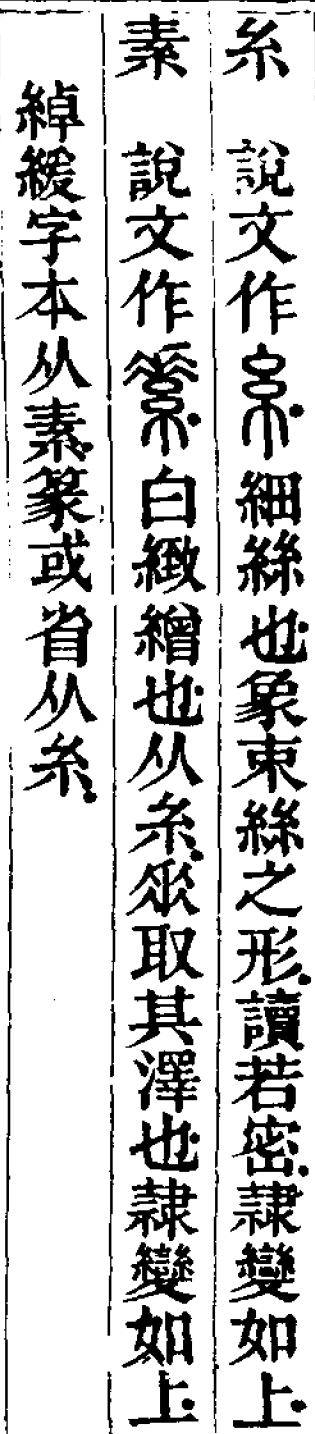 糸 說文作糸。細絲也。象束絲之形。讀若密。隸變如上。
素 說文作𦃃。白緻繒也。从糸。𠂹取其澤也。隸變如上。
綽緩字本从素。篆或省从糸。